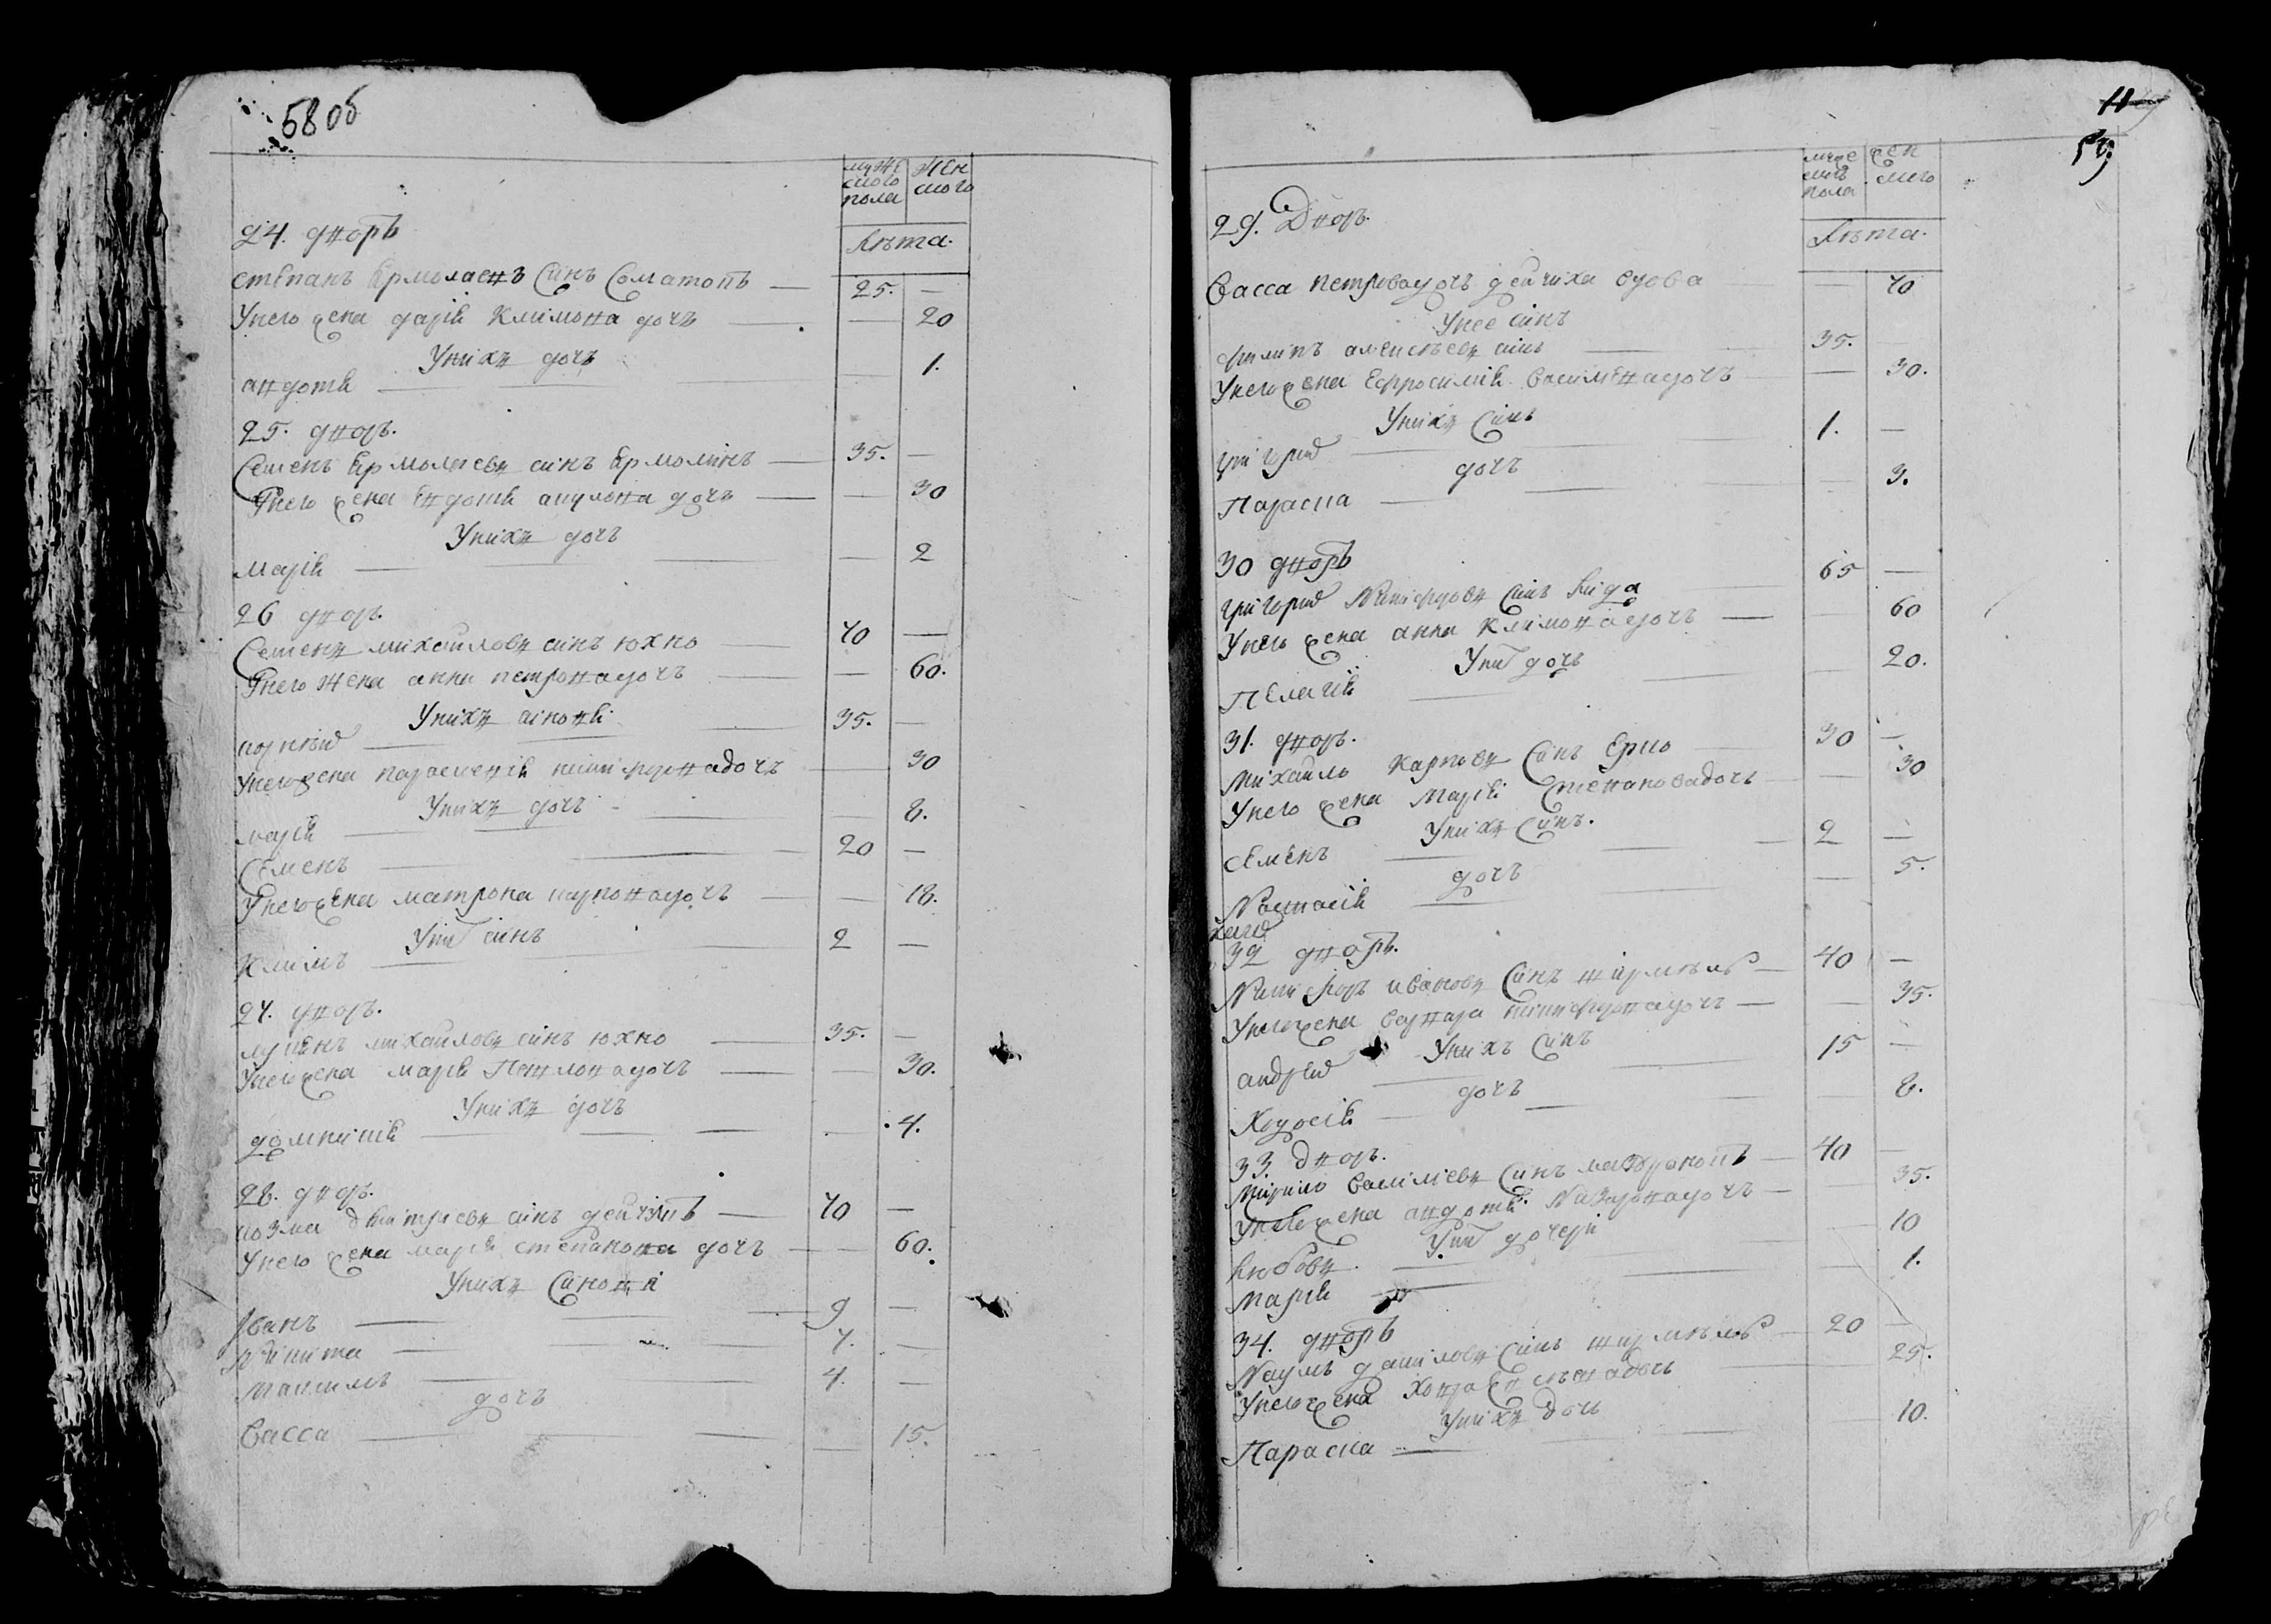 58 об
муже
ского
пола
жен
ского
лѣта.
24. дворъ
степанъ Ермолаевъ синъ Соматопъ — 25. —
Унего жена дарія климова дочъ — — 20
Унихъ дочъ
авдотя — — 1.
25. дворъ.
Семенъ Ермолаевъ синъ Ермолинъ — 35. —
Унего жена Евдотя акулова дочъ — — 30
Унихъ дочъ
марія — — 2
26 дворъ.
Семенъ михаиловъ синъ юхно — 70 —
Унего жена анна петровадочъ — — 60.
Унихъ синовя
корнѣй — 35. —
Унегожена парасковія никифоровадочъ — 30
Унихъ дочъ
марія — — 8.
Семенъ — 20 —
Унегожена матрона карповадочъ — — 18.
Уних синъ
климъ — 2 —
27. дворъ.
лукянъ михаиловъ синъ юхно — 35. —
Унегожена марія Павловадочъ — — 30.
Унихъ дочъ
домникия — — 4.
28. дворъ.
козма дмитриевъ синъ дейчукъ — 70 —
Унего жена марія степанова дочъ — — 60.
Унихъ Синовя
Іванъ — 9 —
Никита — 7. —
максимъ — 4. —
дочъ
Васса — — 15.
59
муже
ского
пола
жен
ского
лѣта.
29. Дворъ.
Васса петровадочъ дейчиха вдова — 70
Унее синъ
филипъ алексѣевъ синъ — 35.
Унегожена Ефросимія Василевадочъ — — 30.
Унихъ Синъ
григорий — 1. —
дочъ
Параска — — 3.
30 дворъ
григорий Никифоровъ синъ Лида 65 —
Унего жена анна климовадочъ — — 60
Уних дочъ
Пелагія — — 20.
31. дворъ.
михаило карповъ Синъ Ерко — 30 —
Унего жена Марія Степановадочъ — 30
Унихъ Синъ.
Семенъ — 2 —
дочъ
Настасія — — 5.
32 дворъ.
Никифоръ ивановъ Синъ — 40 —
Унегожена варвара никифоровадочъ — — 35.
Унихъ Синъ
андрей — 15 —
дочъ
Ходосія — — 8.
33. дворъ.
Кирило Василіевъ Синъ — 40 —
Унегожена авдотя Назаровадочъ — — 35.
Уних дочери
Любовъ. — — 10
Марія — — 1.
34. дворъ
Наумъ даниловъ Синъ — 20 —
Унегожена — 25.
Унихъ дочъ
Параска — 10.